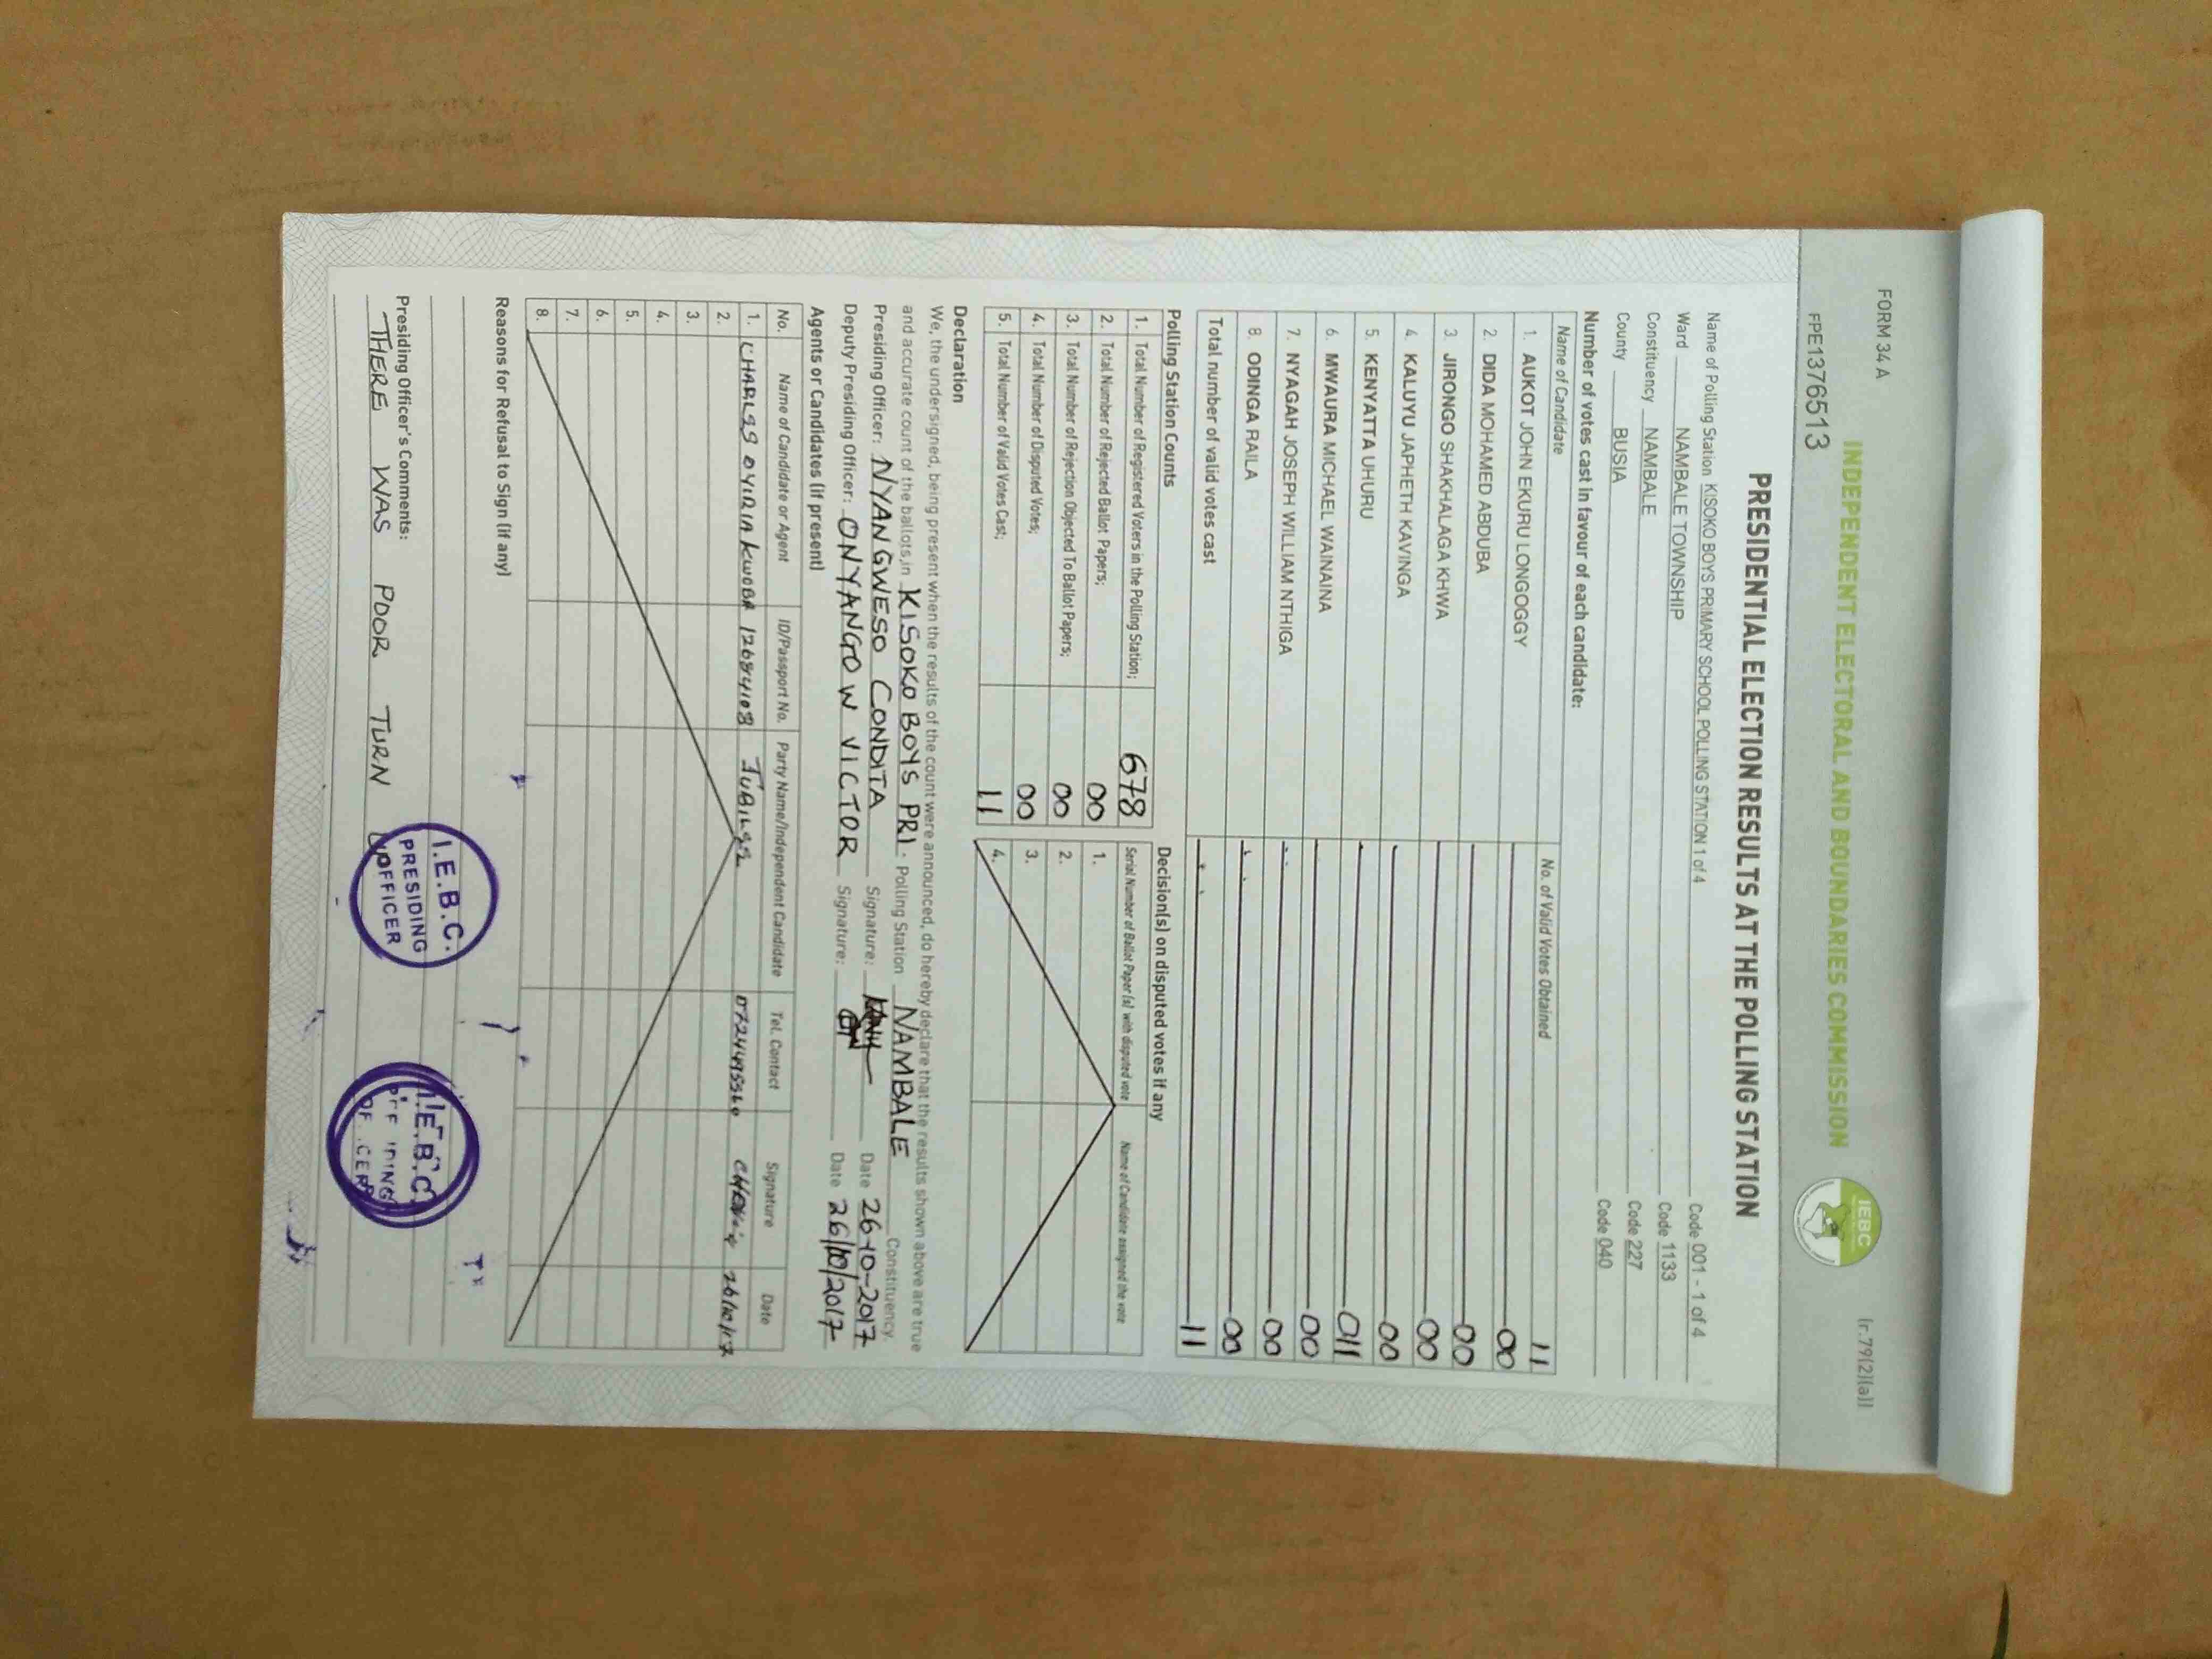 FORM 34 A
(r.79(2)(a))
FPE1376513
INDEPENDENT ELECTORAL AND BOUNDARIES COMMISSION
IEBC
PRESIDENTIAL ELECTION RESULTS AT THE POLLING STATION
Name of Polling Station KISOKO BOYS PRIMARY SCHOOL POLLING STATION 1 of 4 Code 001 - 1 of 4
Ward NAMBALE TOWNSHIP Code 1133
Constituency NAMBALE Code 227
County BUSIA Code 040
Number of votes cast in favour of each candidate:
Name of Candidate No. of Valid Votes Obtained 11
1. AUKOT JOHN EKURU LONGOGGY 00
2. DIDA MOHAMED ABDUBA 00
3. JIRONGO SHAKHALAGA KHWA 00
4. KALUYU JAPHETH KAVINGA 00
5. KENYATTA UHURU 011
6. MWAURA MICHAEL WAINAINA 00
7. NYAGAH JOSEPH WILLIAM NTHIGA 00
8. ODINGA RAILA 00
Total number of valid votes cast 11
Polling Station Counts
1. Total Number of Registered Voters in the Polling Station; 678
2. Total Number of Rejected Ballot Papers; 00
3. Total Number of Rejection Objected To Ballot Papers; 00
4. Total Number of Disputed Votes; 00
5. Total Number of Valid Votes Cast; 11
Decision(s) on disputed votes if any
Serial Number of Ballot Paper (s) with disputed vote Name of Candidate assigned the vote
1.
2.
3.
4.
Declaration
We, the undersigned, being present when the results of the count were announced, do hereby declare that the results shown above are true
and accurate count of the ballots in KISOKO BOYS PRI. Polling Station NAMBALE Constituency.
Presiding Officer: NYANGWESO CONDITA Signature: Date 26-10-2017
Deputy Presiding Officer: ONYANGO W VICTOR Signature: Date 26/10/2017
Agents or Candidates (if present)
No. Name of Candidate or Agent ID/Passport No. Party Name/Independent Candidate Tel. Contact Signature Date
1. CHARLES 12684108 26/10/17
2.
3.
4.
5.
6.
7.
8.
Reasons for Refusal to Sign (if any)
Presiding Officer's Comments:
THERE WAS POOR TURN
I.E.B.C.
PRESIDING
OFFICER
I.E.B.C